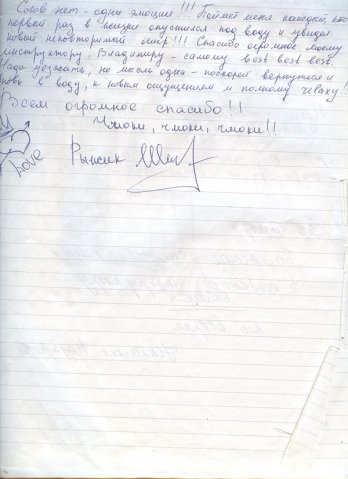 Слов нет - одни эмоции!!! Поймёт меня каждый, кто
первый раз в жизни опустился под воду и увидел
новый неповторимый мир!!! Спасибо огромное моему
инструктору, Владимиру - самому best best best.
Надо уезжать, но мысль одна - поскорее вернуться и
вновь в воду, к новым ощущениям и полному релаху!!
Всем огромное спасибо!!
Чмоки, чмоки, чмоки!!
Love